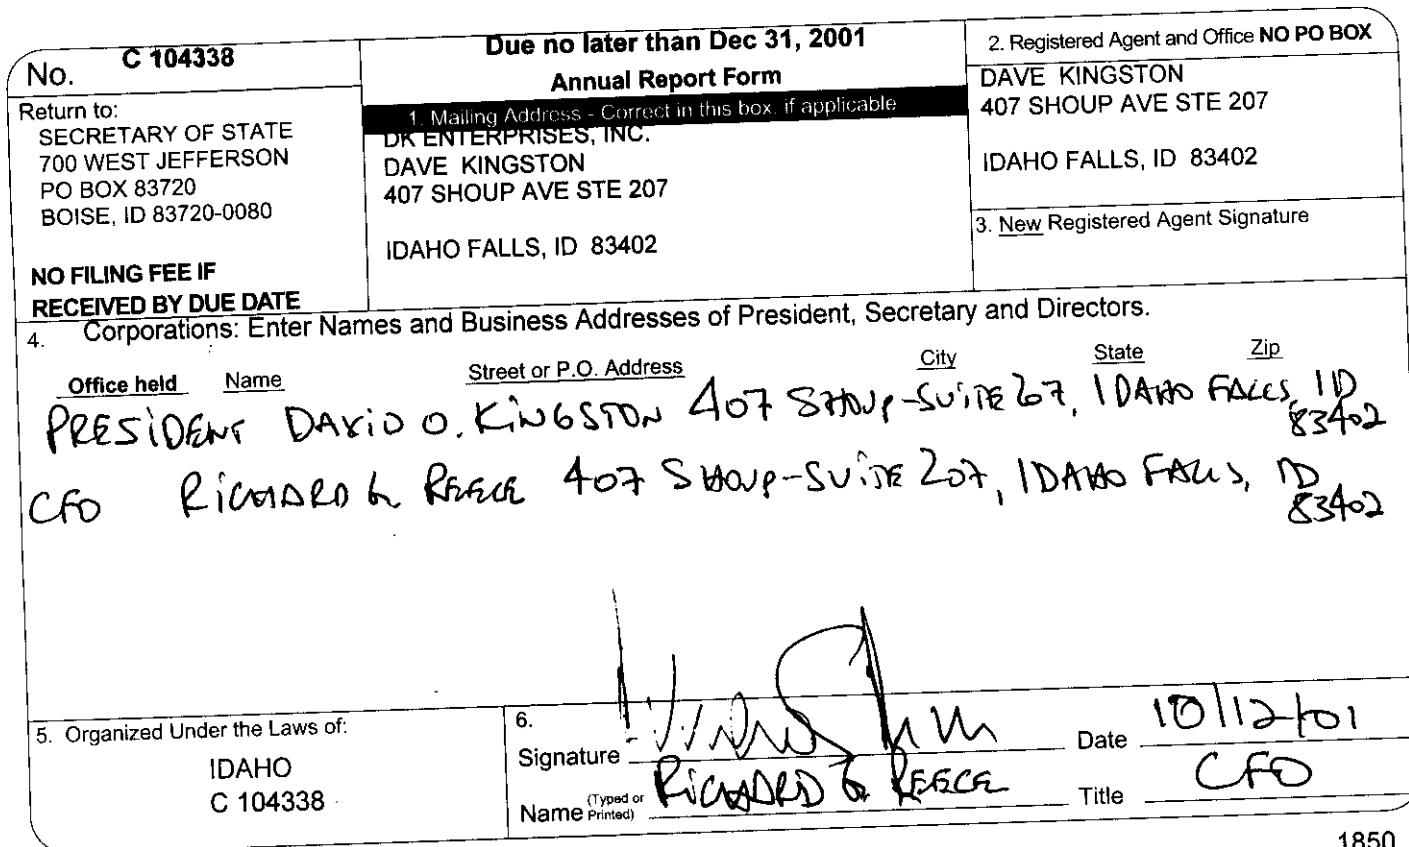 No. C 104338
Return to:
SECRETARY OF STATE
700 WEST JEFFERSON
PO BOX 83720
BOISE, ID 83720-0080
NO FILING FEE IF
RECEIVED BY DUE DATE
Due no later than Dec 31, 2001
Annual Report Form
1. Mailing Address - Correct in this box, if applicable
DK ENTERPRISES, INC.
DAVE KINGSTON
407 SHOUP AVE STE 207
IDAHO FALLS, ID 83402
2. Registered Agent and Office NO PO BOX
DAVE KINGSTON
407 SHOUP AVE STE 207
IDAHO FALLS, ID 83402
3. New Registered Agent Signature
4. Corporations: Enter Names and Business Addresses of President, Secretary and Directors.
Office held Name Street or P.O. Address City State Zip
PRESIDENT DAVID O. KINGSTON 407 SHOUP-SUITE 207, IDAHO FALLS, ID
83402
CFO RICHARD G REECE 407 SHOUP-SUITE 207, IDAHO FALLS, ID
83402
5. Organized Under the Laws of:
IDAHO
C 104338
6.
Signature Date 10/12/01
Name (Typed or Printed) RICHARD G REECE Title CFO
1850